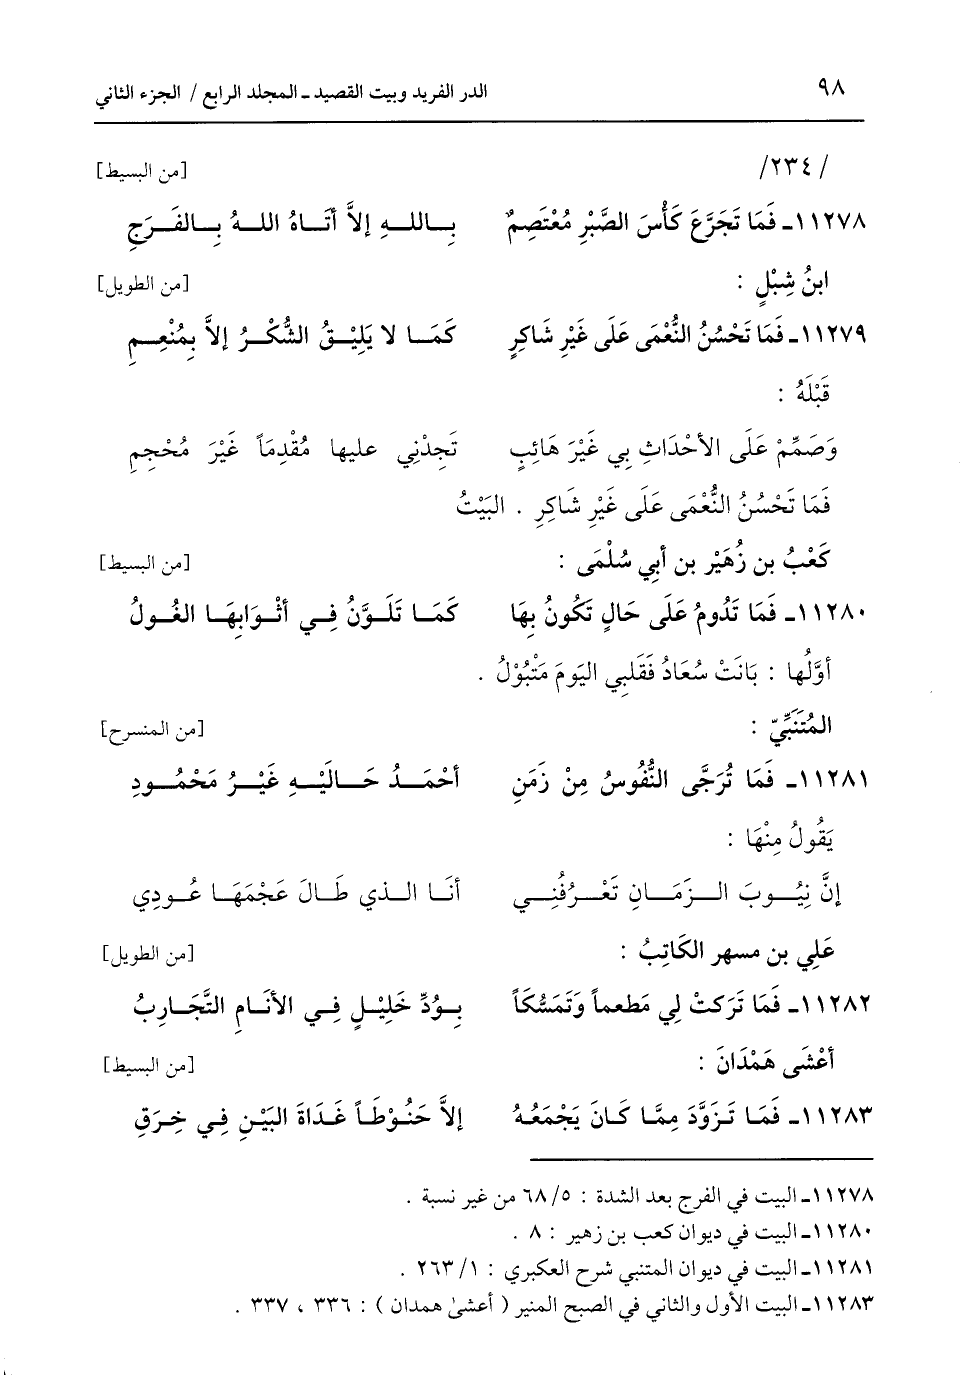 ٩٨ الدر الفريد وبيت القصيد ـ المجلد الرابع / الجزء الثاني
/٢٣٤/ [من البسيط]
١١٢٧٨ـ فَمَا تَجَرَّعَ كَأْسَ الصَّبْرِ مُعْتَصِمٌ بِاللهِ إلاَّ أتَاهُ اللهُ بِالفَرَجِ
ابنُ شِبْلٍ : [من الطويل]
١١٢٧٩ـ فَمَا تَحْسُنُ النُّعْمَى عَلَى غَيْرِ شَاكِرٍ كَمَا لا يَلِيْقُ الشُّكْرُ إلاَّ بِمُنْعِمِ
قَبْلَهُ :
وَصَمِّمْ عَلَى الأحْدَاثِ بِي غَيْرَ هَائِبٍ تَجِدْنِي عليها مُقْدِمَاً غَيْرَ مُحْجِمِ
فَمَا تَحْسُنُ النُّعْمَى عَلَى غَيْرِ شَاكِرِ . البَيْتُ
كَعْبُ بن زُهَيْر بن أبي سُلْمَى : [من البسيط]
١١٢٨٠ـ فَمَا تَدُومُ عَلَى حَالٍ تَكُونُ بِهَا كَمَا تَلَوَّنُ فِي أثْوَابِهَا الغُولُ
أوَّلُها : بَانَتْ سُعَادُ فَقَلبِي اليَومَ مَتْبُوْلُ .
المُتَنَبِّيّ : [من المنسرح]
١١٢٨١ـ فَمَا تُرَجَّى النُّفُوسُ مِنْ زَمَنِ أحْمَدُ حَالَيْهِ غَيْرُ مَحْمُودِ
يَقُولُ مِنْهَا :
إنَّ نِيُوبَ الزَّمَانِ تَعْرُفُنِي أنَا الذي طَالَ عَجْمَهَا عُودِي
عَلِي بن مسهر الكَاتِبُ : [من الطويل]
١١٢٨٢ـ فَمَا تَرَكتْ لِي مَطعماً وَتَمَسُّكَاً بِوُدِّ خَلِيْلٍ فِي الأنَامِ التَّجَارِبُ
أعْشَى هَمْدَانَ : [من البسيط]
١١٢٨٣ـ فَمَا تَزَوَّدَ مِمَّا كَانَ يَجْمَعُهُ إلاَّ حَنُوطَاً غَدَاةَ البَيْنِ فِي خِرَقِ
١١٢٧٨ـ البيت في الفرج بعد الشدة : ٦٨/٥ من غير نسبة .
١١٢٨٠ـ البيت في ديوان كعب بن زهير : ٨ .
١١٢٨١ـ البيت في ديوان المتنبي شرح العكبري : ٢٦٣/١ .
١١٢٨٣ـ البيت الأول والثاني في الصبح المنير ( أعشىٰ همدان ) : ٣٣٦ ، ٣٣٧ .